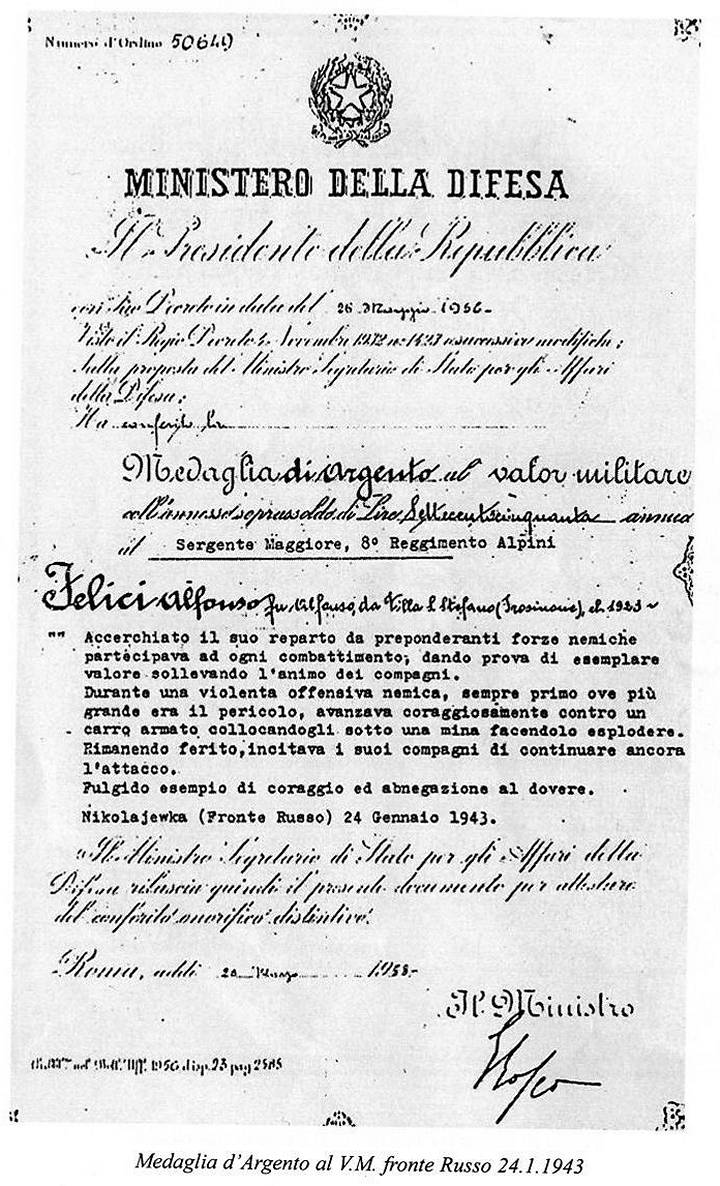 Numero d'Ordine 50649
MINISTERO DELLA DIFESA
Il Presidente della Repubblica
con Suo Decreto in data del 26 Maggio 1956-
Visto il Regio Decreto 4 Novembre 1932 n. 1423 e successive modifiche;
Sulla proposta del Ministro Segretario di Stato per gli Affari
della Difesa;
Ha conferito la
Medaglia di Argento al valor militare
coll'annesso soprassoldo di Lire Settecentocinquanta annue
al Sergente Maggiore, 8° Reggimento Alpini
Felici Alfonso fu Alfonso, da Villa S. Stefano (Frosinone), cl. 1923 ~
"" Accerchiato il suo reparto da preponderanti forze nemiche
partecipava ad ogni combattimento, dando prova di esemplare
valore sollevando l'animo dei compagni.
Durante una violenta offensiva nemica, sempre primo ove più
grande era il pericolo, avanzava coraggiosamente contro un
carro armato collocandogli sotto una mina facendolo esplodere.
Rimanendo ferito, incitava i suoi compagni di continuare ancora
l'attacco.
Fulgido esempio di coraggio ed abnegazione al dovere.
Nikolajewka (Fronte Russo) 24 Gennaio 1943.
Il Ministro Segretario di Stato per gli Affari della
Difesa rilascia quindi il presente documento per attestare
del conferito onorifico distintivo.
Roma, addì 20 1958-
Il Ministro
1956 disp. 23 pag 2585
Medaglia d'Argento al V.M. fronte Russo 24.1.1943